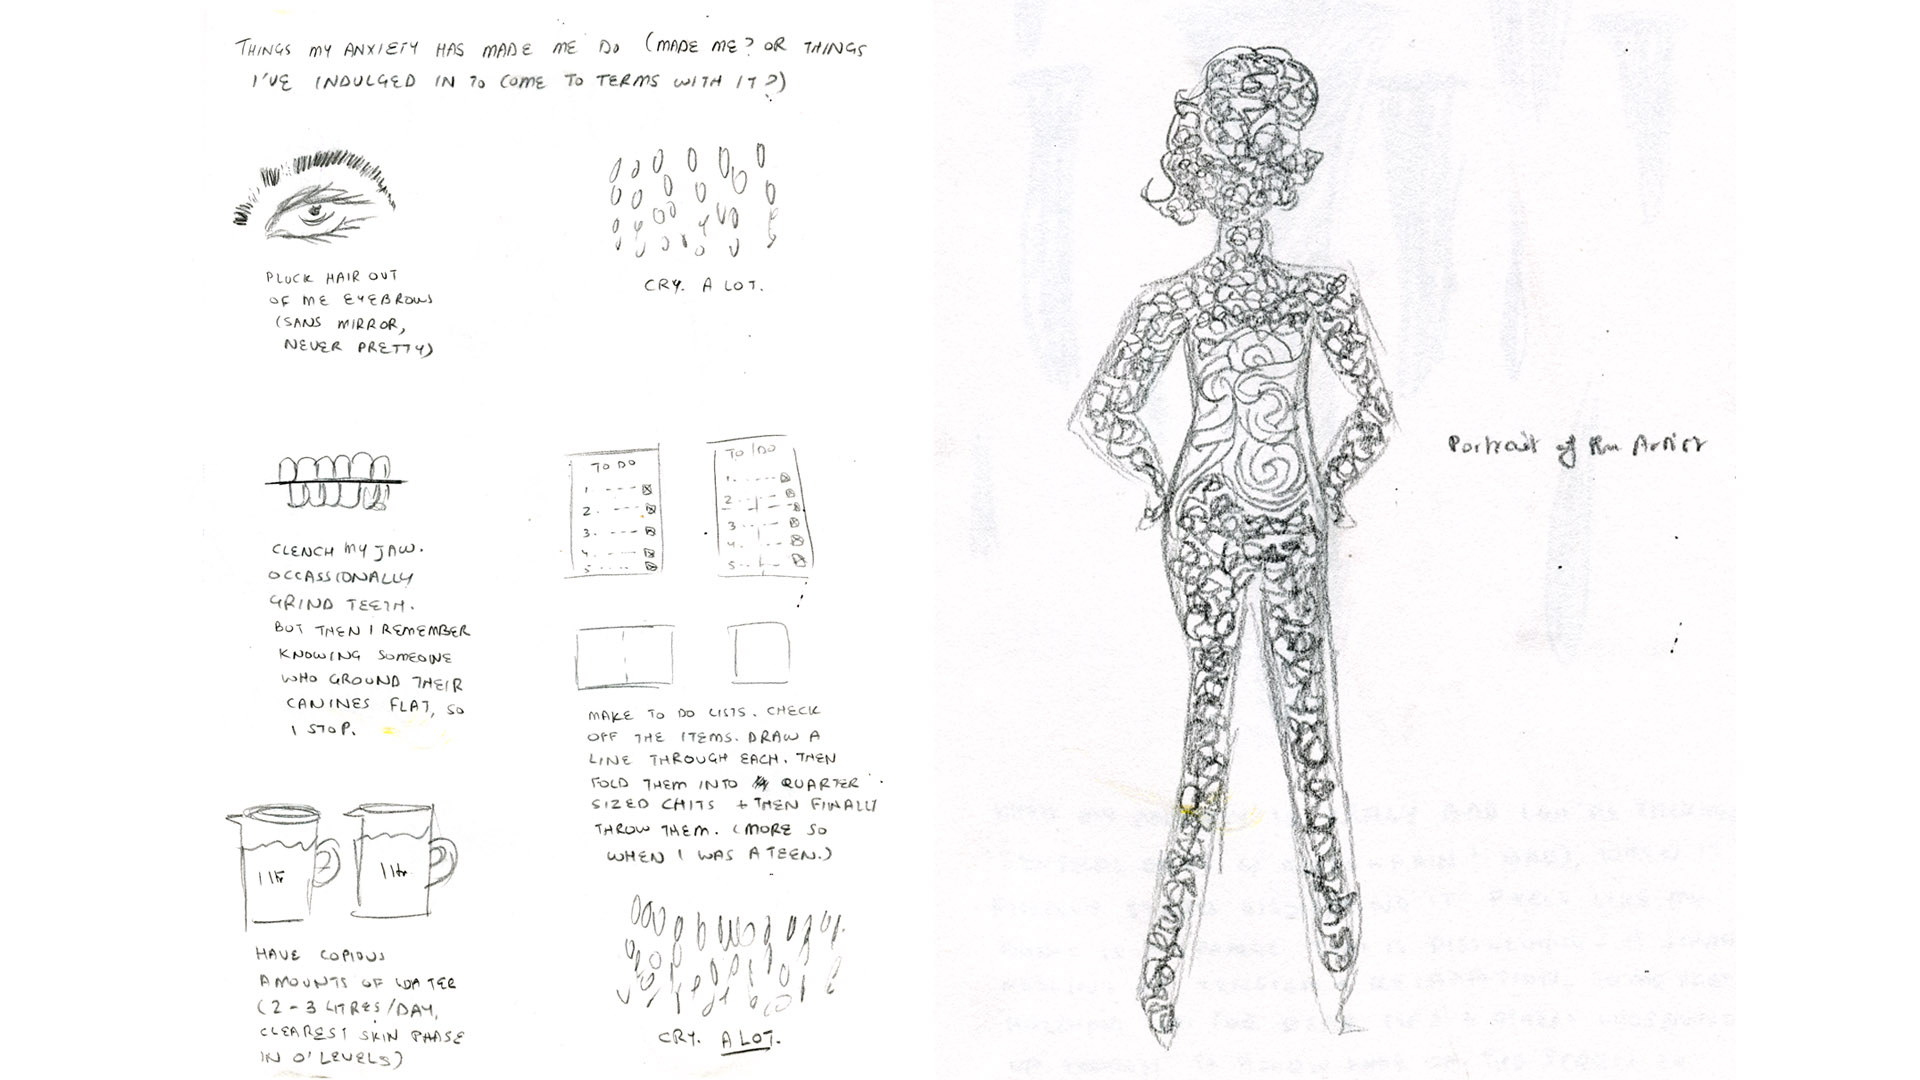 THINGS MY ANXIETY HAS MADE ME DO (MADE ME? OR THINGS
I'VE INDULGED IN TO COME TO TERMS WITH IT?)
PLUCK HAIR OUT
OF ME EYEBROWS
(SANS MIRROR,
NEVER PRETTY)
CRY. A LOT.
CLENCH MY JAW.
OCCASSIONALLY
GRIND TEETH.
BUT THEN I REMEMBER
KNOWING SOMEONE
WHO GROUND THEIR
CANINES FLAT, SO
I STOP.
TO DO
1.
2.
3.
4.
5.
TO DO
1.
2.
3.
4.
5.
MAKE TO DO LISTS. CHECK
OFF THE ITEMS. DRAW A
LINE THROUGH EACH. THEN
FOLD THEM INTO QUARTER
SIZED CHITS + THEN FINALLY
THROW THEM. (MORE SO
WHEN I WAS A TEEN.)
1 ltr
1 ltr.
HAVE COPIOUS
AMOUNTS OF WATER
(2-3 LITRES/DAY,
CLEAREST SKIN PHASE
IN O'LEVELS)
CRY. A LOT.
Portrait of the Artist